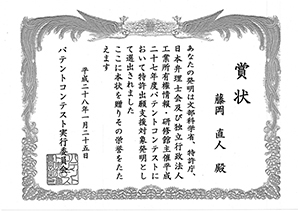 賞状
藤岡 直人 殿
あなたの発明は文部科学省、特許庁、
日本弁理士会及び独立行政法人
工業所有権情報・研修館主催平成
二十七年度パテントコンテストに
おいて特許出願支援対象発明とし
て選出されました
ここに本状を贈りその栄誉をたた
えます
平成二十八年一月二十五日
パテントコンテスト実行委員会